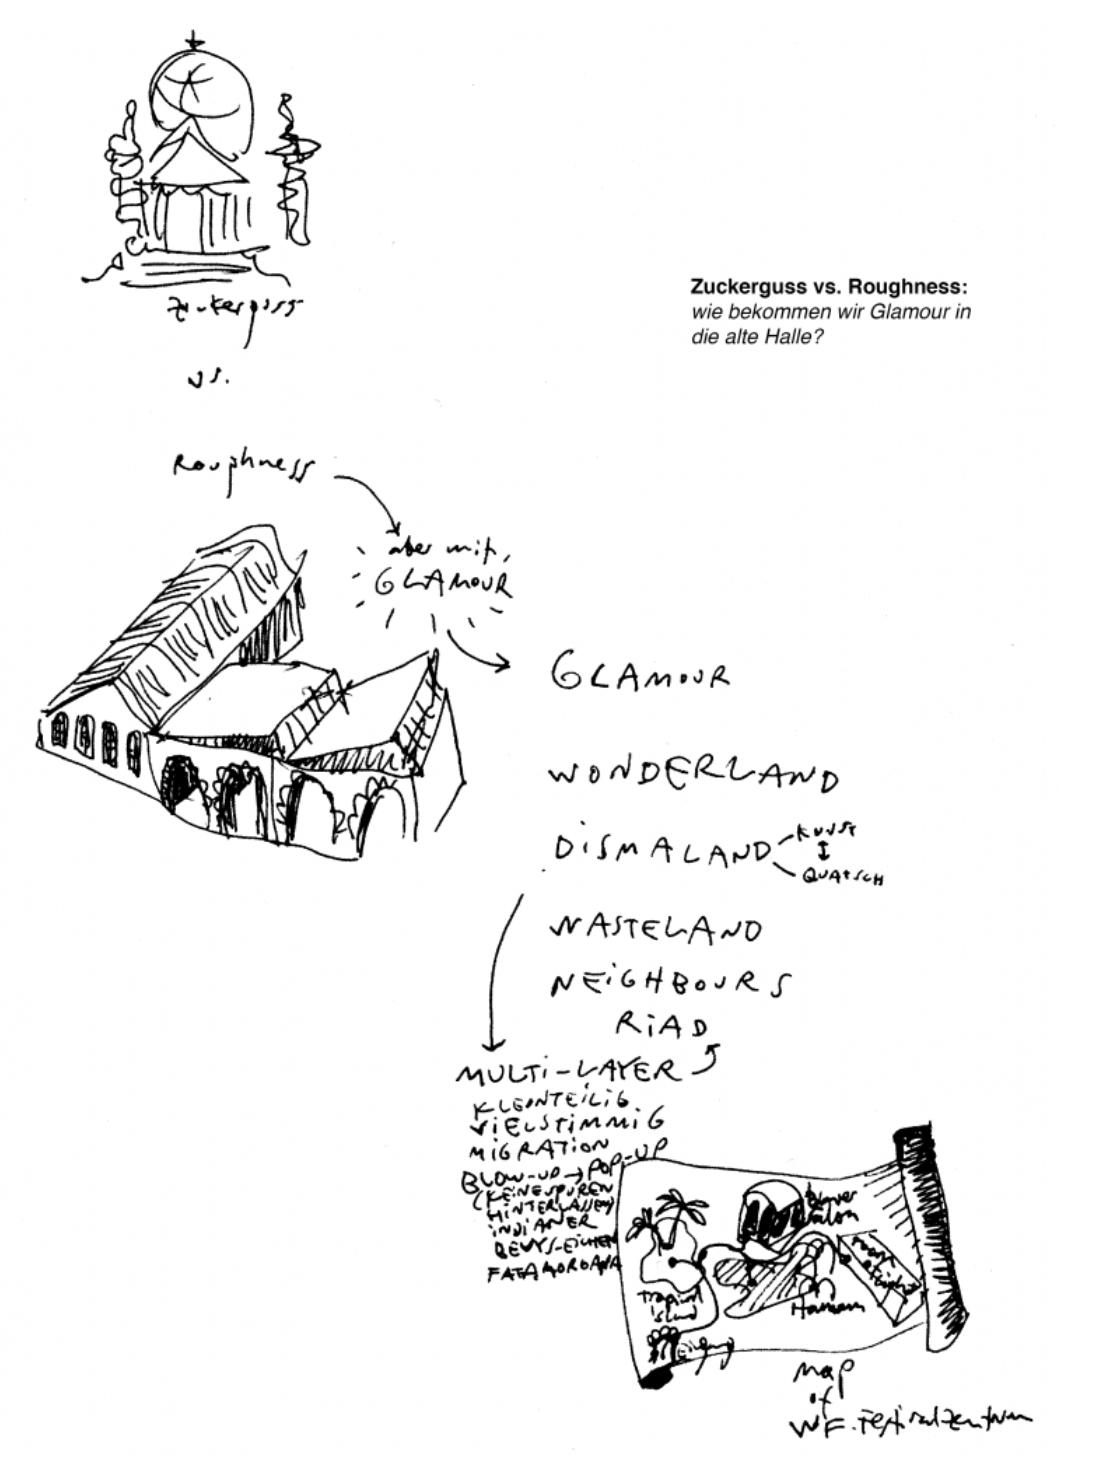 Zuckerguss
vs.
Roughness
aber mit
GLAMOUR
Zuckerguss vs. Roughness:
wie bekommen wir Glamour in
die alte Halle?
GLAMOUR
WONDERLAND
DiSMALAND
KUNST
QUATSCH
WASTELAND
NEiGHBOURS
RiAD
MULTi-LAYER
KLEINTEILIG
ViELSTiMMiG
MiGRATiON
BLOW-UP → POP-UP
(KEiNE SPUREN
HiNTERLASSEN)
iNDiANER
BEUYS-EiCHEN
FATA MORGANA
Blauer
Salon
Tropical
Island
Hamam
Eingang
map
of
WF. Festivalzentrum